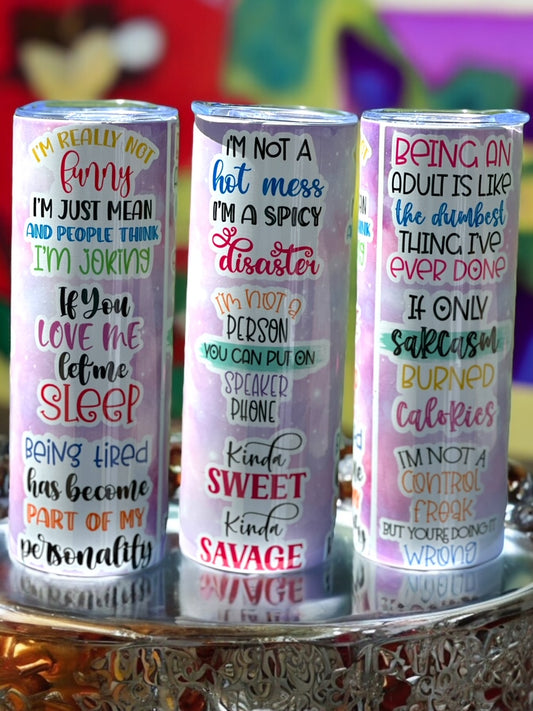 I'M REALLY NOT
funny
I'M JUST MEAN
AND PEOPLE THINK
I'M JOKING
If You
LOVE ME
let me
SLEEP
BEING TIRED
has become
PART OF MY
personality
I'M NOT A
hot mess
I'M A SPICY
disaster
I'm not a
PERSON
YOU CAN PUT ON
SPEAKER
PHONE
Kinda
SWEET
Kinda
SAVAGE
BEING AN
ADULT IS LIKE
the dumbest
THING I'VE
EVER DONE
IF ONLY
SARCASM
BURNED
Calories
I'M NOT A
CONTROL
freak
BUT YOU'RE DOING IT
WRONG